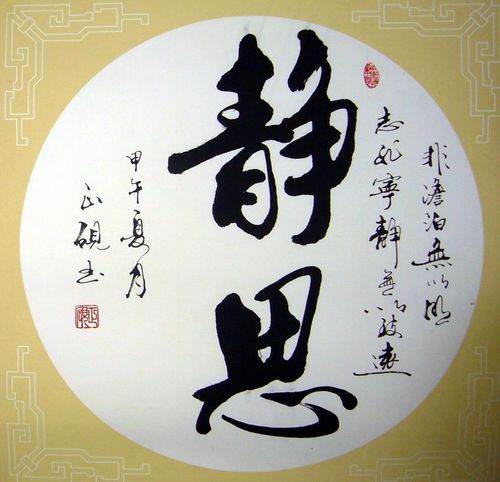 非澹泊無以明
志非寧静無以致遠
静思
甲午夏月
正砚书